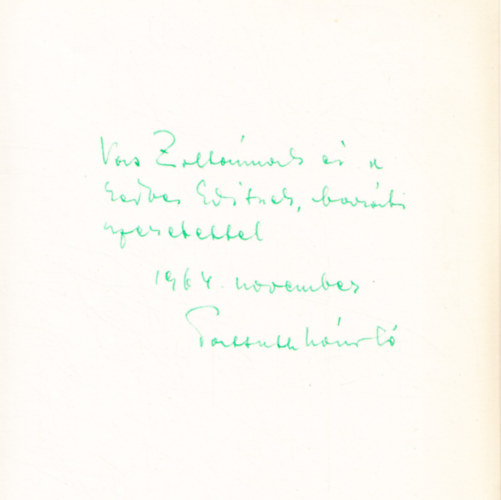 Vas Zoltánnak és a
kedves Editnek, baráti
szeretettel
1964. november
Passuth László